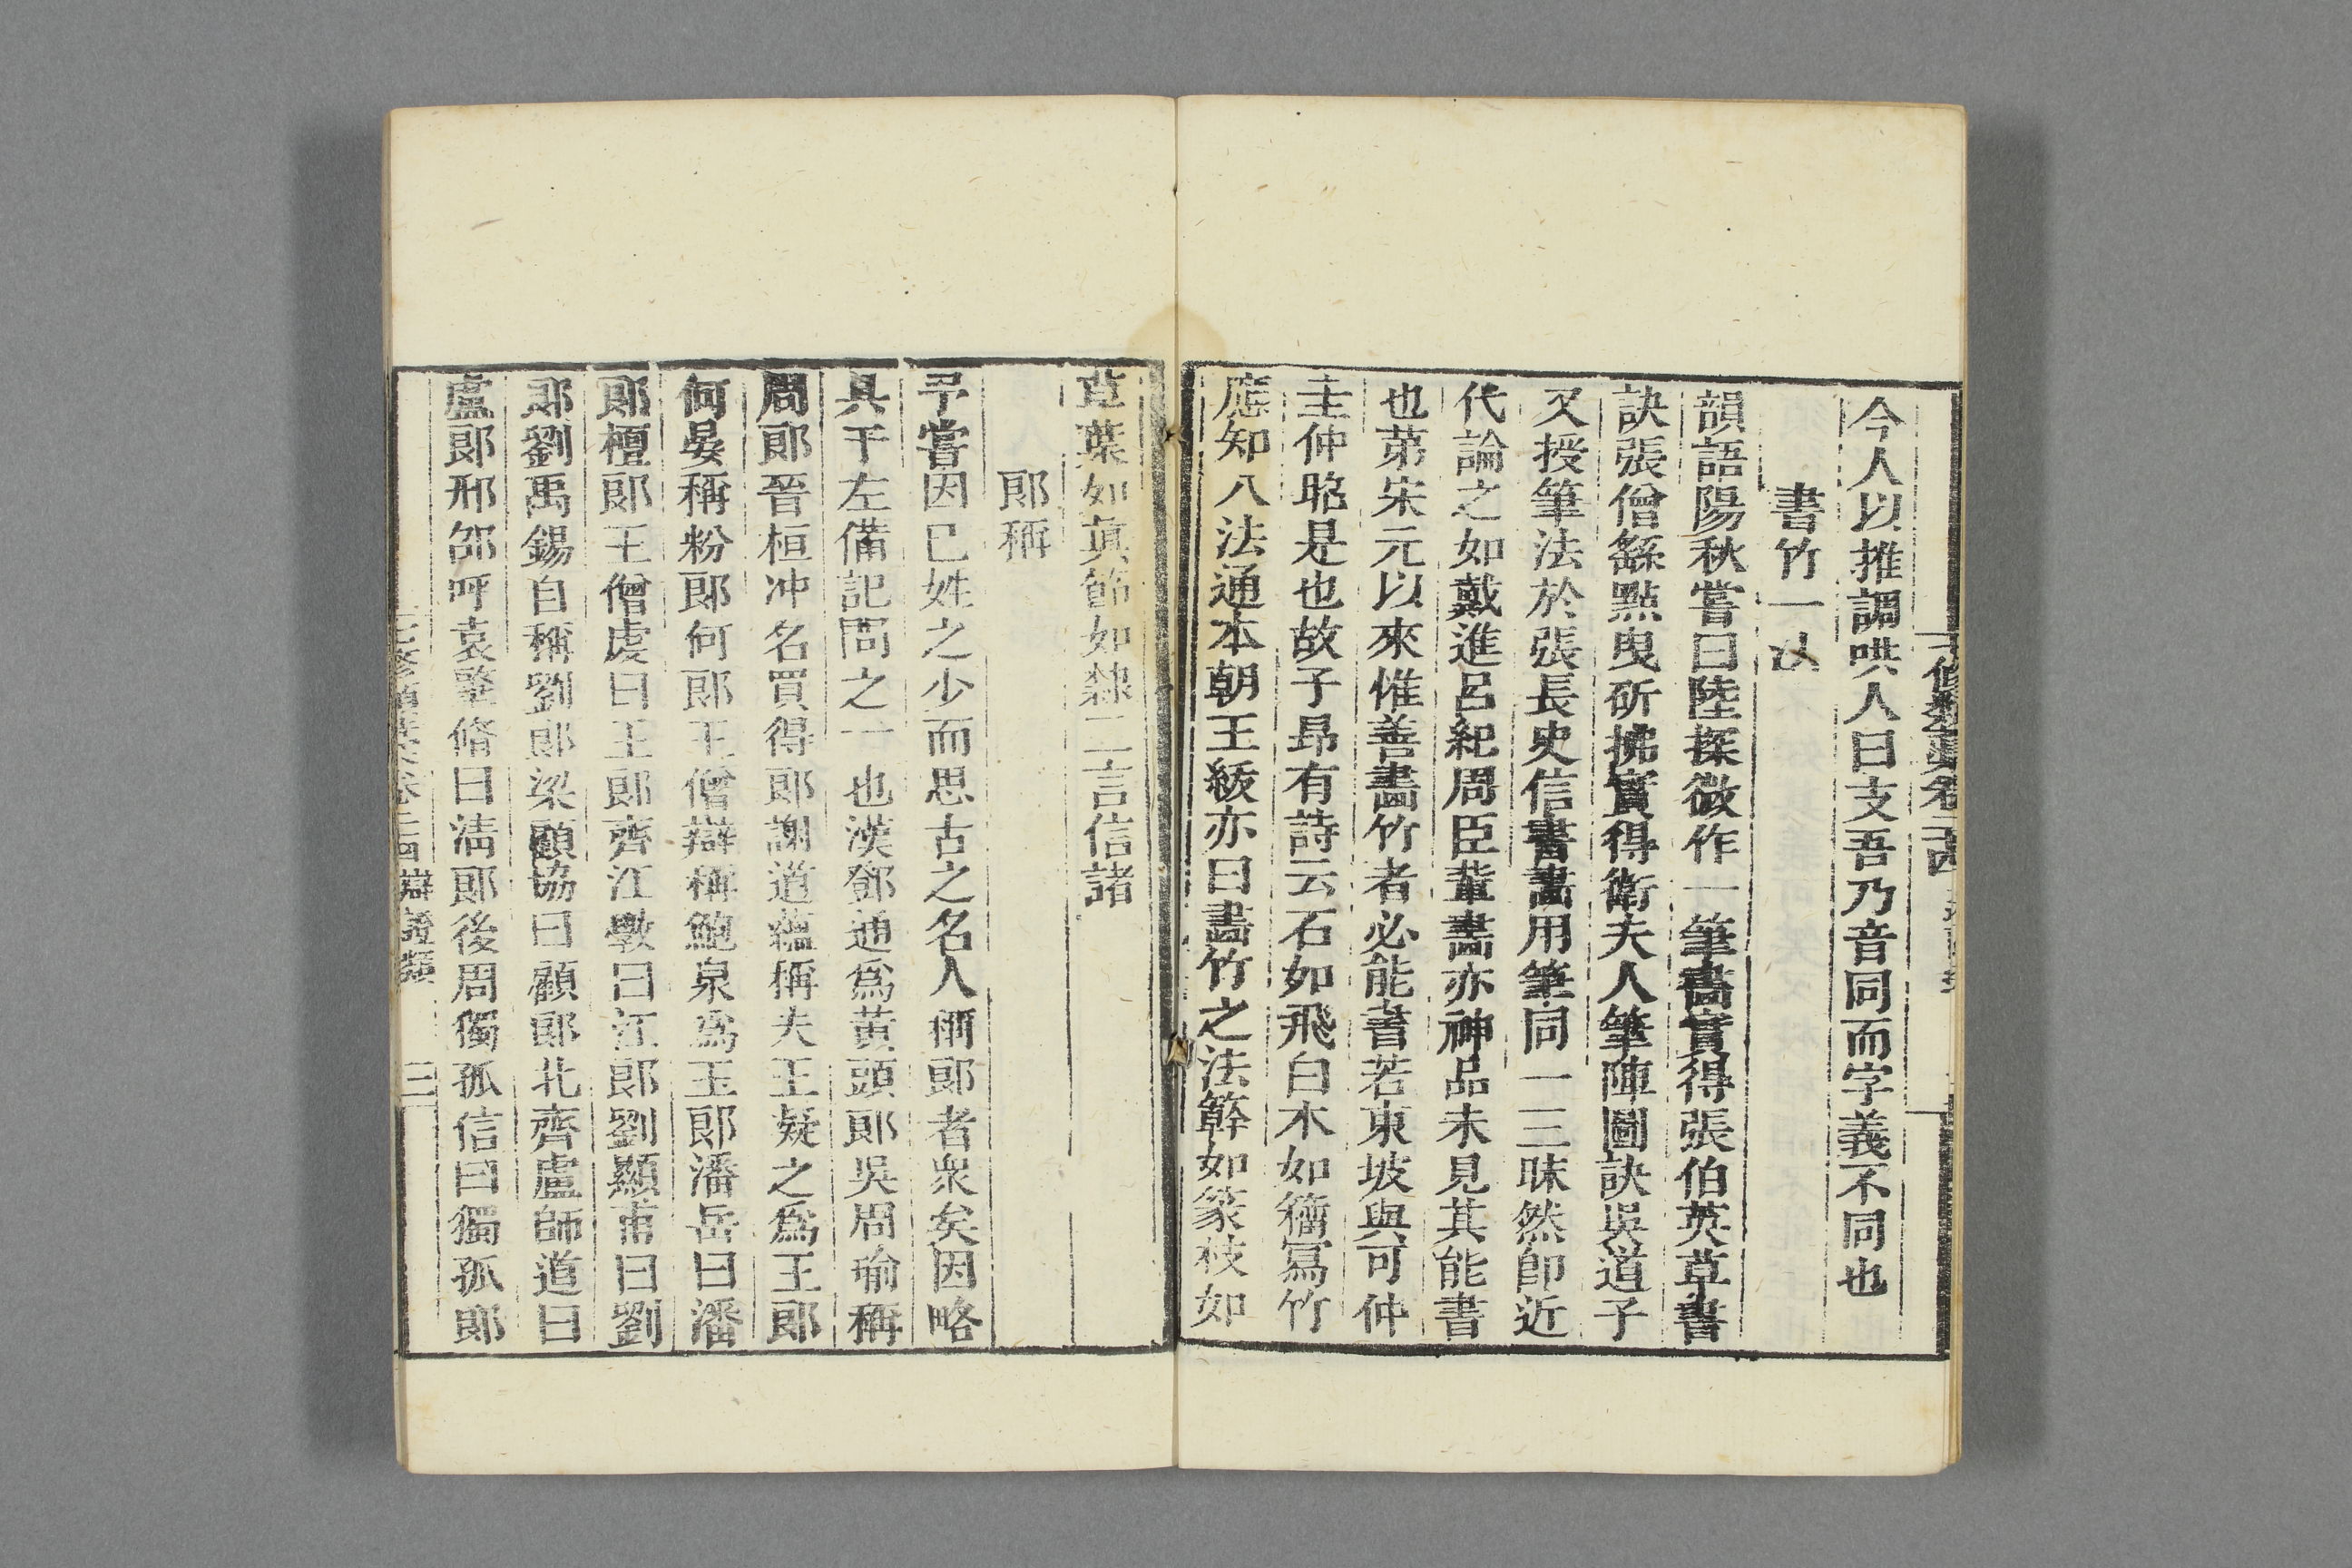 今人以推調哄人曰支吾乃音同而字義不同也
書竹一法
韻語陽秋嘗曰陸探微作一筆畫實得張伯英草書
訣張僧繇點曳斫拂實得衛夫人筆陣圖訣吳道子
又授筆法於張長史信書畫用筆同一三昧然卽近
代論之如戴進呂紀周臣輩畫亦神品未見其能書
也苐宋元以來惟善畫竹者必能書若東坡與可仲
圭仲昭是也故子昻有詩云石如飛白木如籀寫竹
應知八法通本朝王紱亦曰畫竹之法幹如篆枝如
草葉如眞節如隸二言信諸
郞稱
予嘗因已姓之少而思古之名人稱郞者衆矣因略
具干左備記問之一也漢鄧通爲黃頭郞吳周瑜稱
周郞晉桓冲名買得郞謝道蘊稱夫王凝之爲王郞
何晏稱粉郞何郞王僧辯稱鮑泉爲玉郞潘岳曰潘
郞檀郞王僧虔曰王郞齊江斆曰江郞劉顯甫曰劉
郞劉禹錫自稱劉郞梁顧協曰顧郞北齊盧師道曰
盧郞邢邵呼袁聿脩曰淸郞後周獨孤信曰獨孤郞
卷二四 辯證類 三